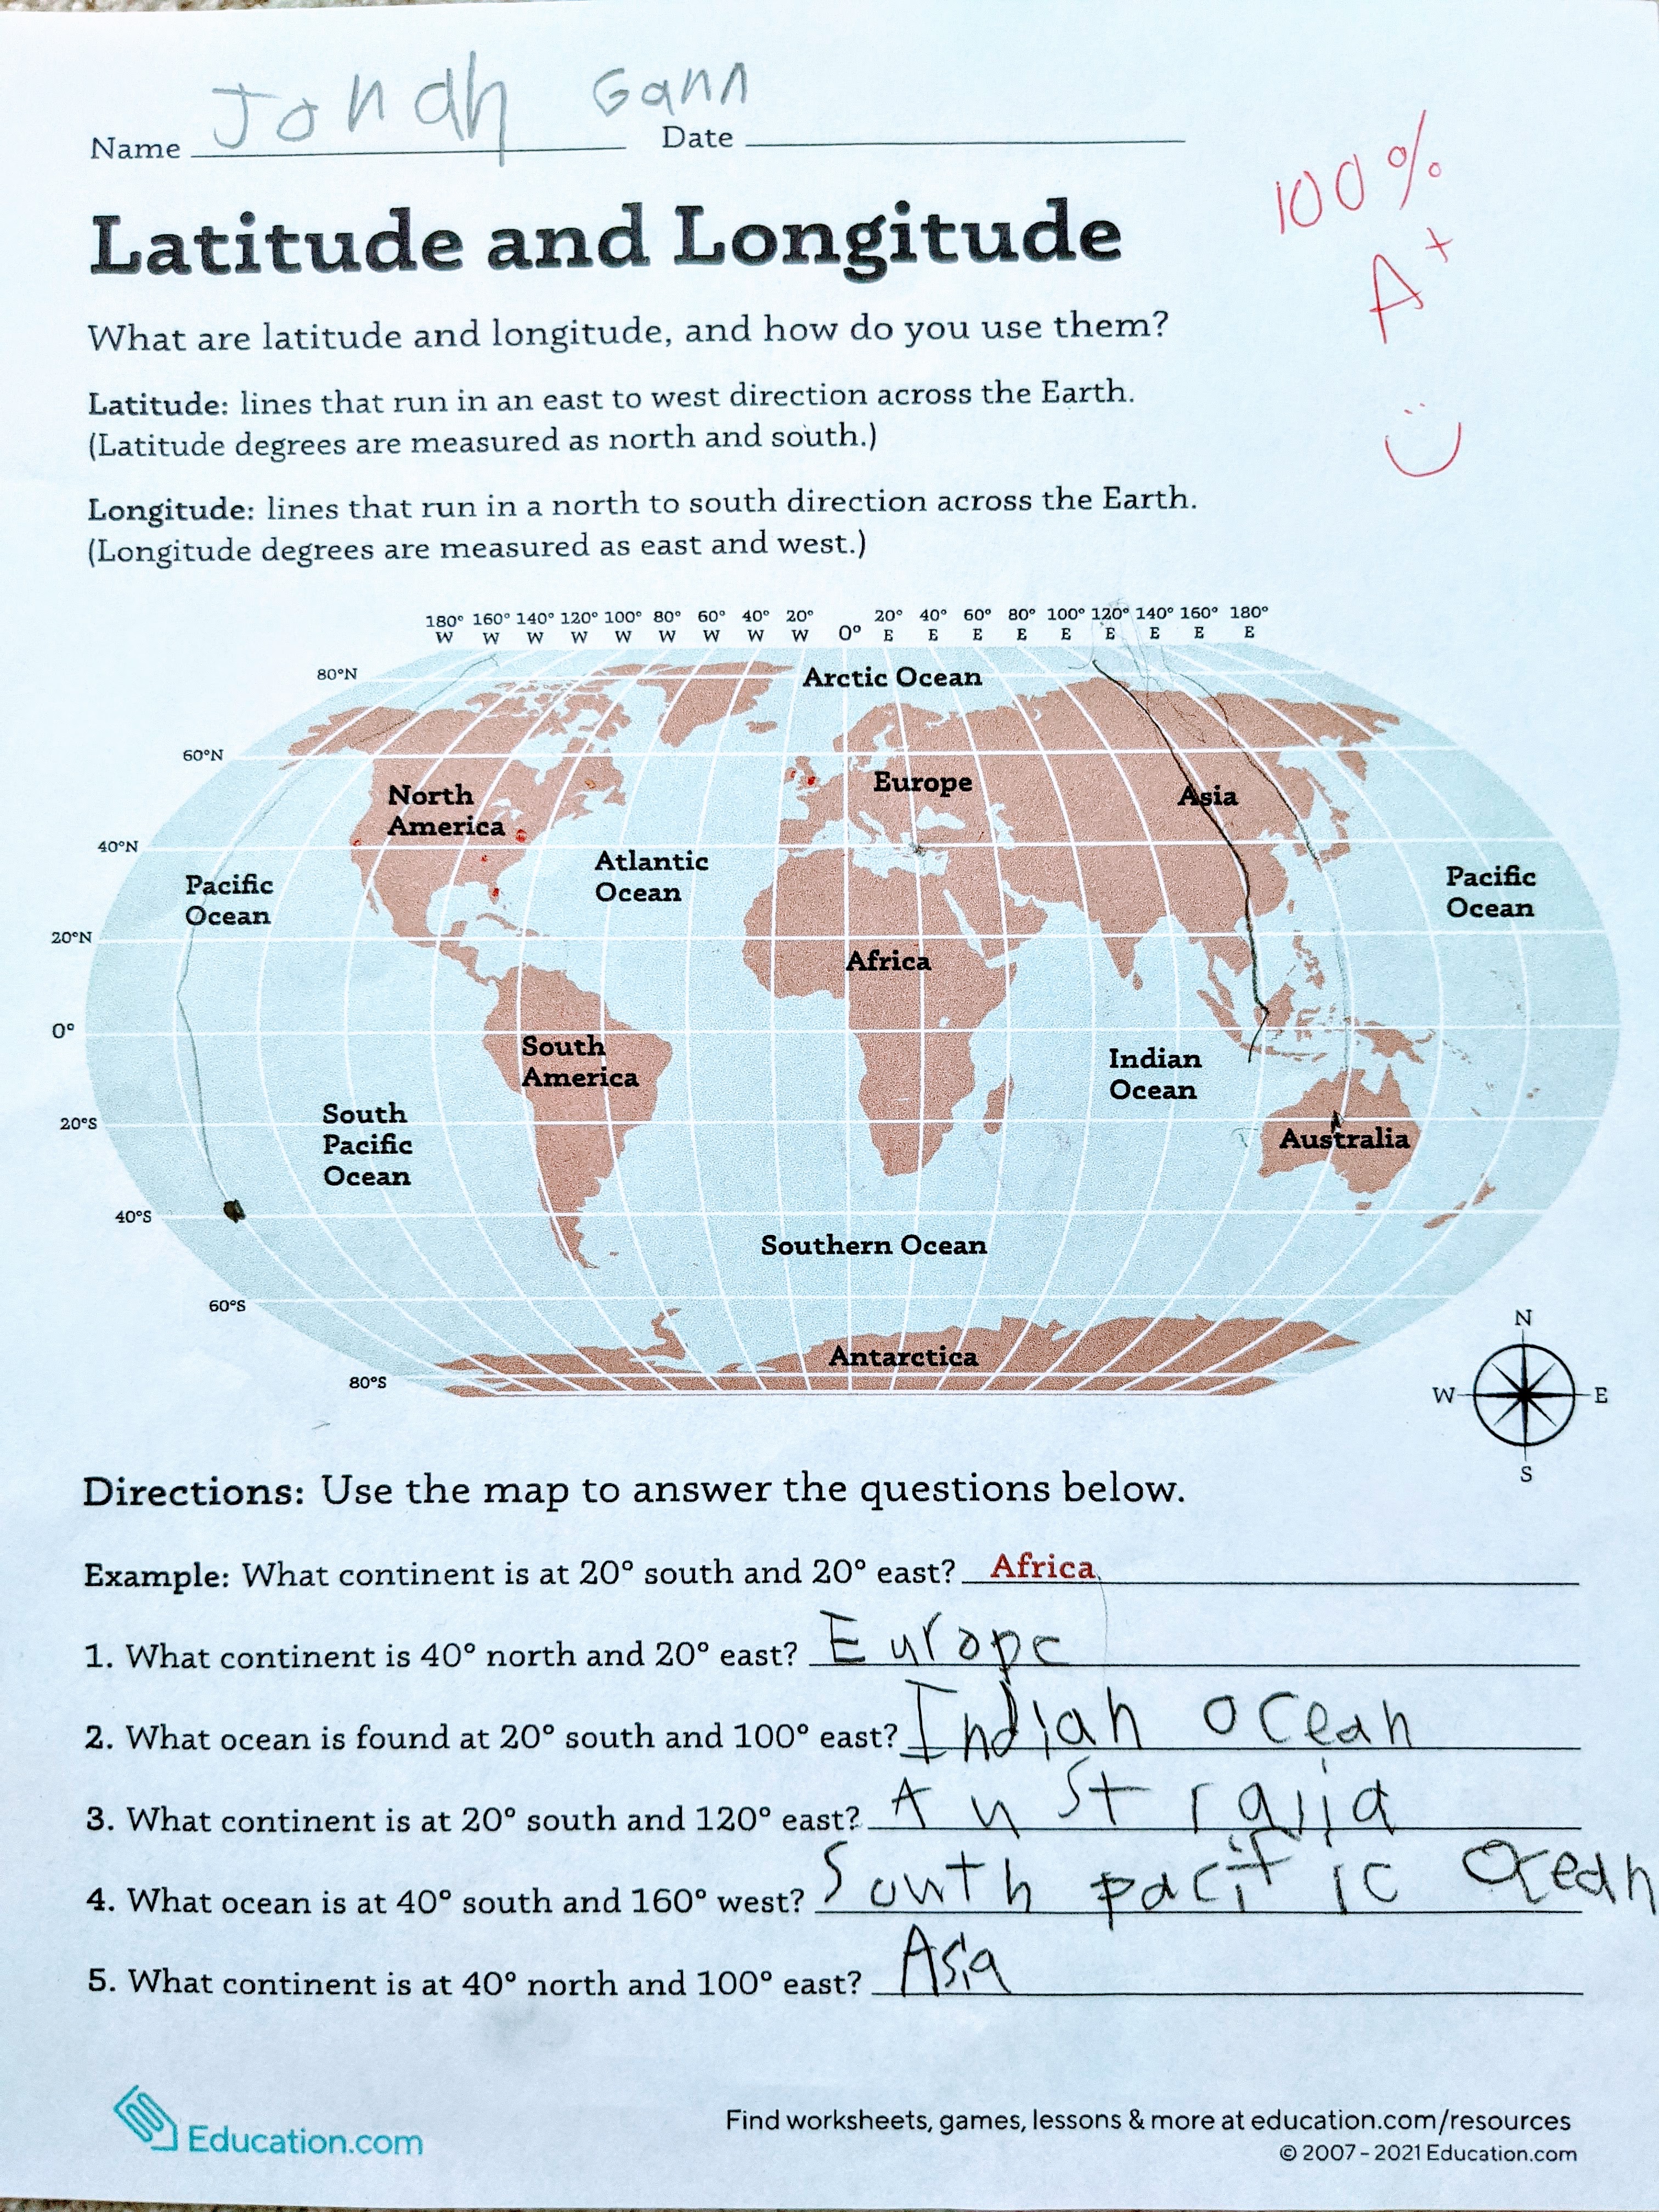 Name Jonah Gann Date
100%
A+
Latitude and Longitude
What are latitude and longitude, and how do you use them?
Latitude: lines that run in an east to west direction across the Earth.
(Latitude degrees are measured as north and south.)
Longitude: lines that run in a north to south direction across the Earth.
(Longitude degrees are measured as east and west.)
180° 160° 140° 120° 100° 80° 60° 40° 20° 0° 20° 40° 60° 80° 100° 120° 140° 160° 180°
W W W W W W W W W E E E E E E E E E
80°N
Arctic Ocean
60°N
North
America
Europe
Asia
40°N
Atlantic
Ocean
Pacific
Ocean
Pacific
Ocean
20°N
Africa
0°
South
America
Indian
Ocean
20°S
South
Pacific
Ocean
Australia
40°S
Southern Ocean
60°S
Antarctica
80°S
N
W E
S
Directions: Use the map to answer the questions below.
Example: What continent is at 20° south and 20° east? Africa
1. What continent is 40° north and 20° east? Europe
2. What ocean is found at 20° south and 100° east? Indian ocean
3. What continent is at 20° south and 120° east? Australia
4. What ocean is at 40° south and 160° west? South pacific Ocean
5. What continent is at 40° north and 100° east? Asia
Education.com
Find worksheets, games, lessons & more at education.com/resources
© 2007 - 2021 Education.com